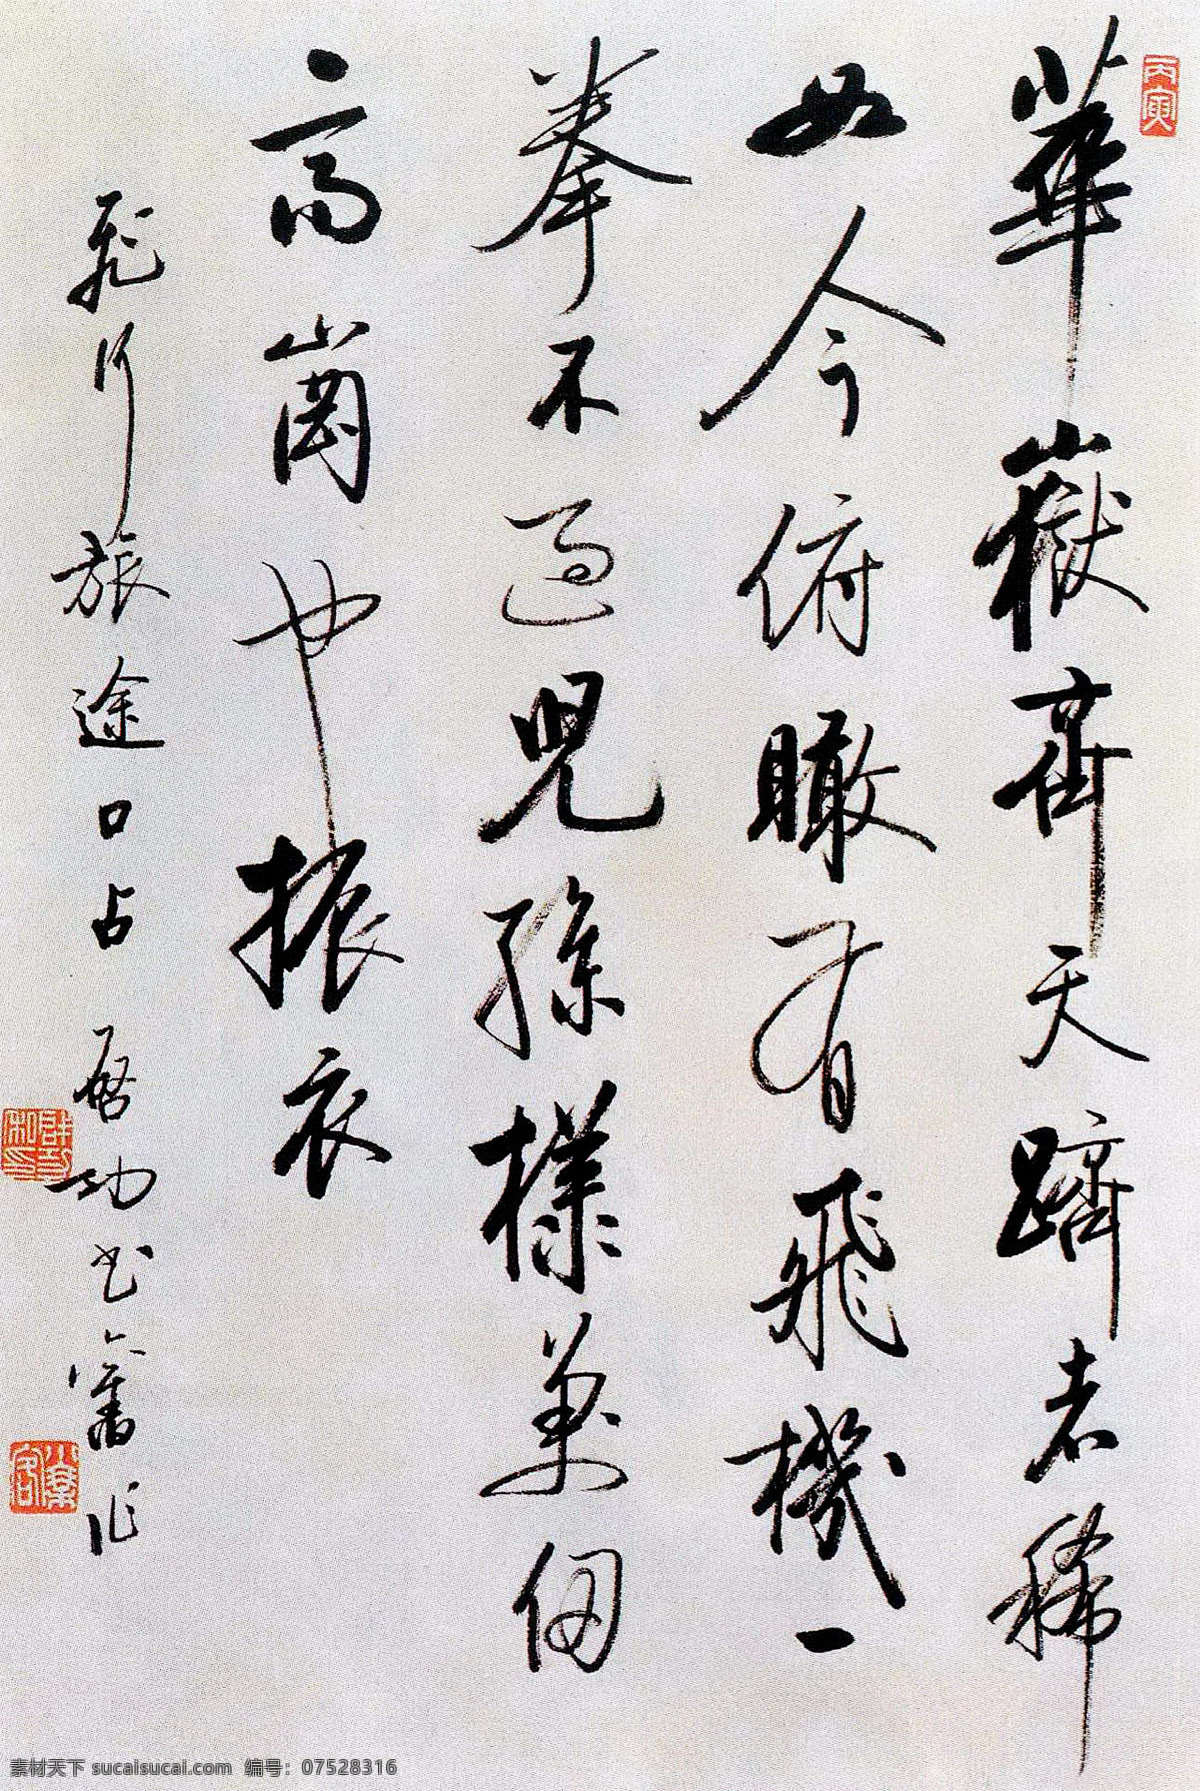 華嶽齊天躋者稀
如今俯瞰有飛機一
拳不過兒孫樣萬仞
高崗也振衣
飛行旅途口占 啓功書舊作
丙寅
啟功私印
素材天下 sucaisucai.com 编号：07528316